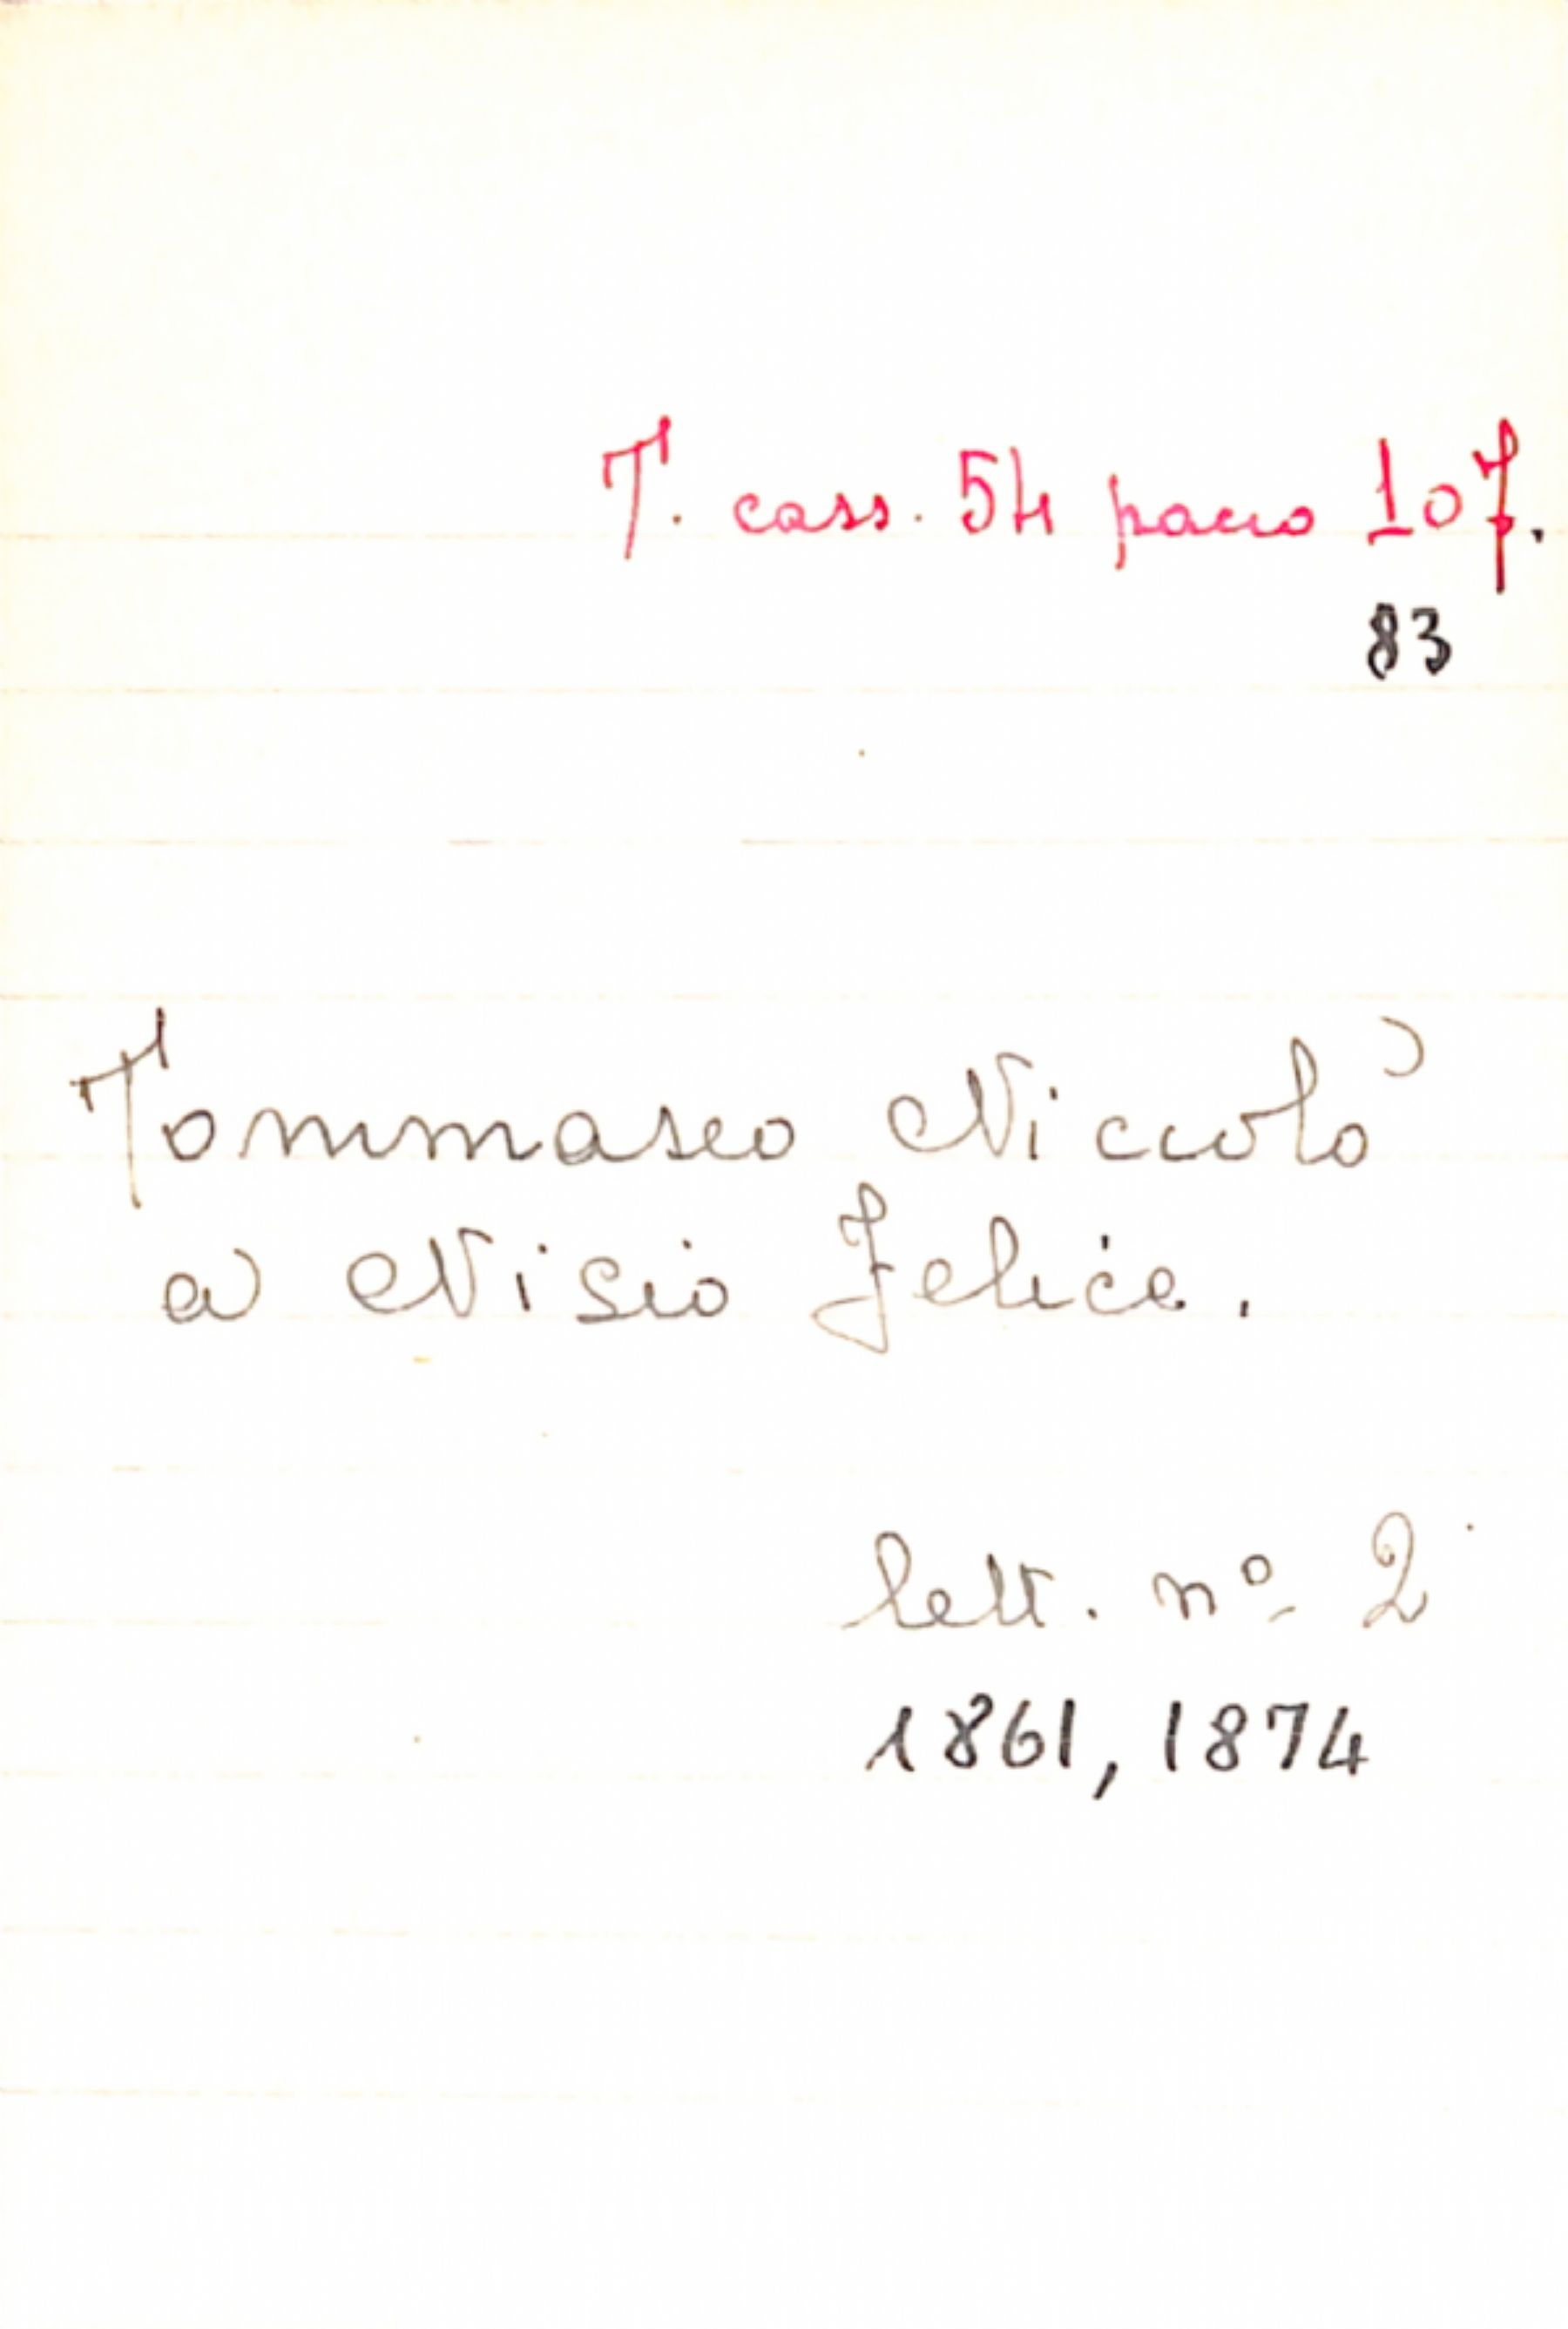 T. cass. 54 pacco 107.
83
Tommaseo Niccolò
a Nisio Felice.
lett. nº 2
1861, 1874